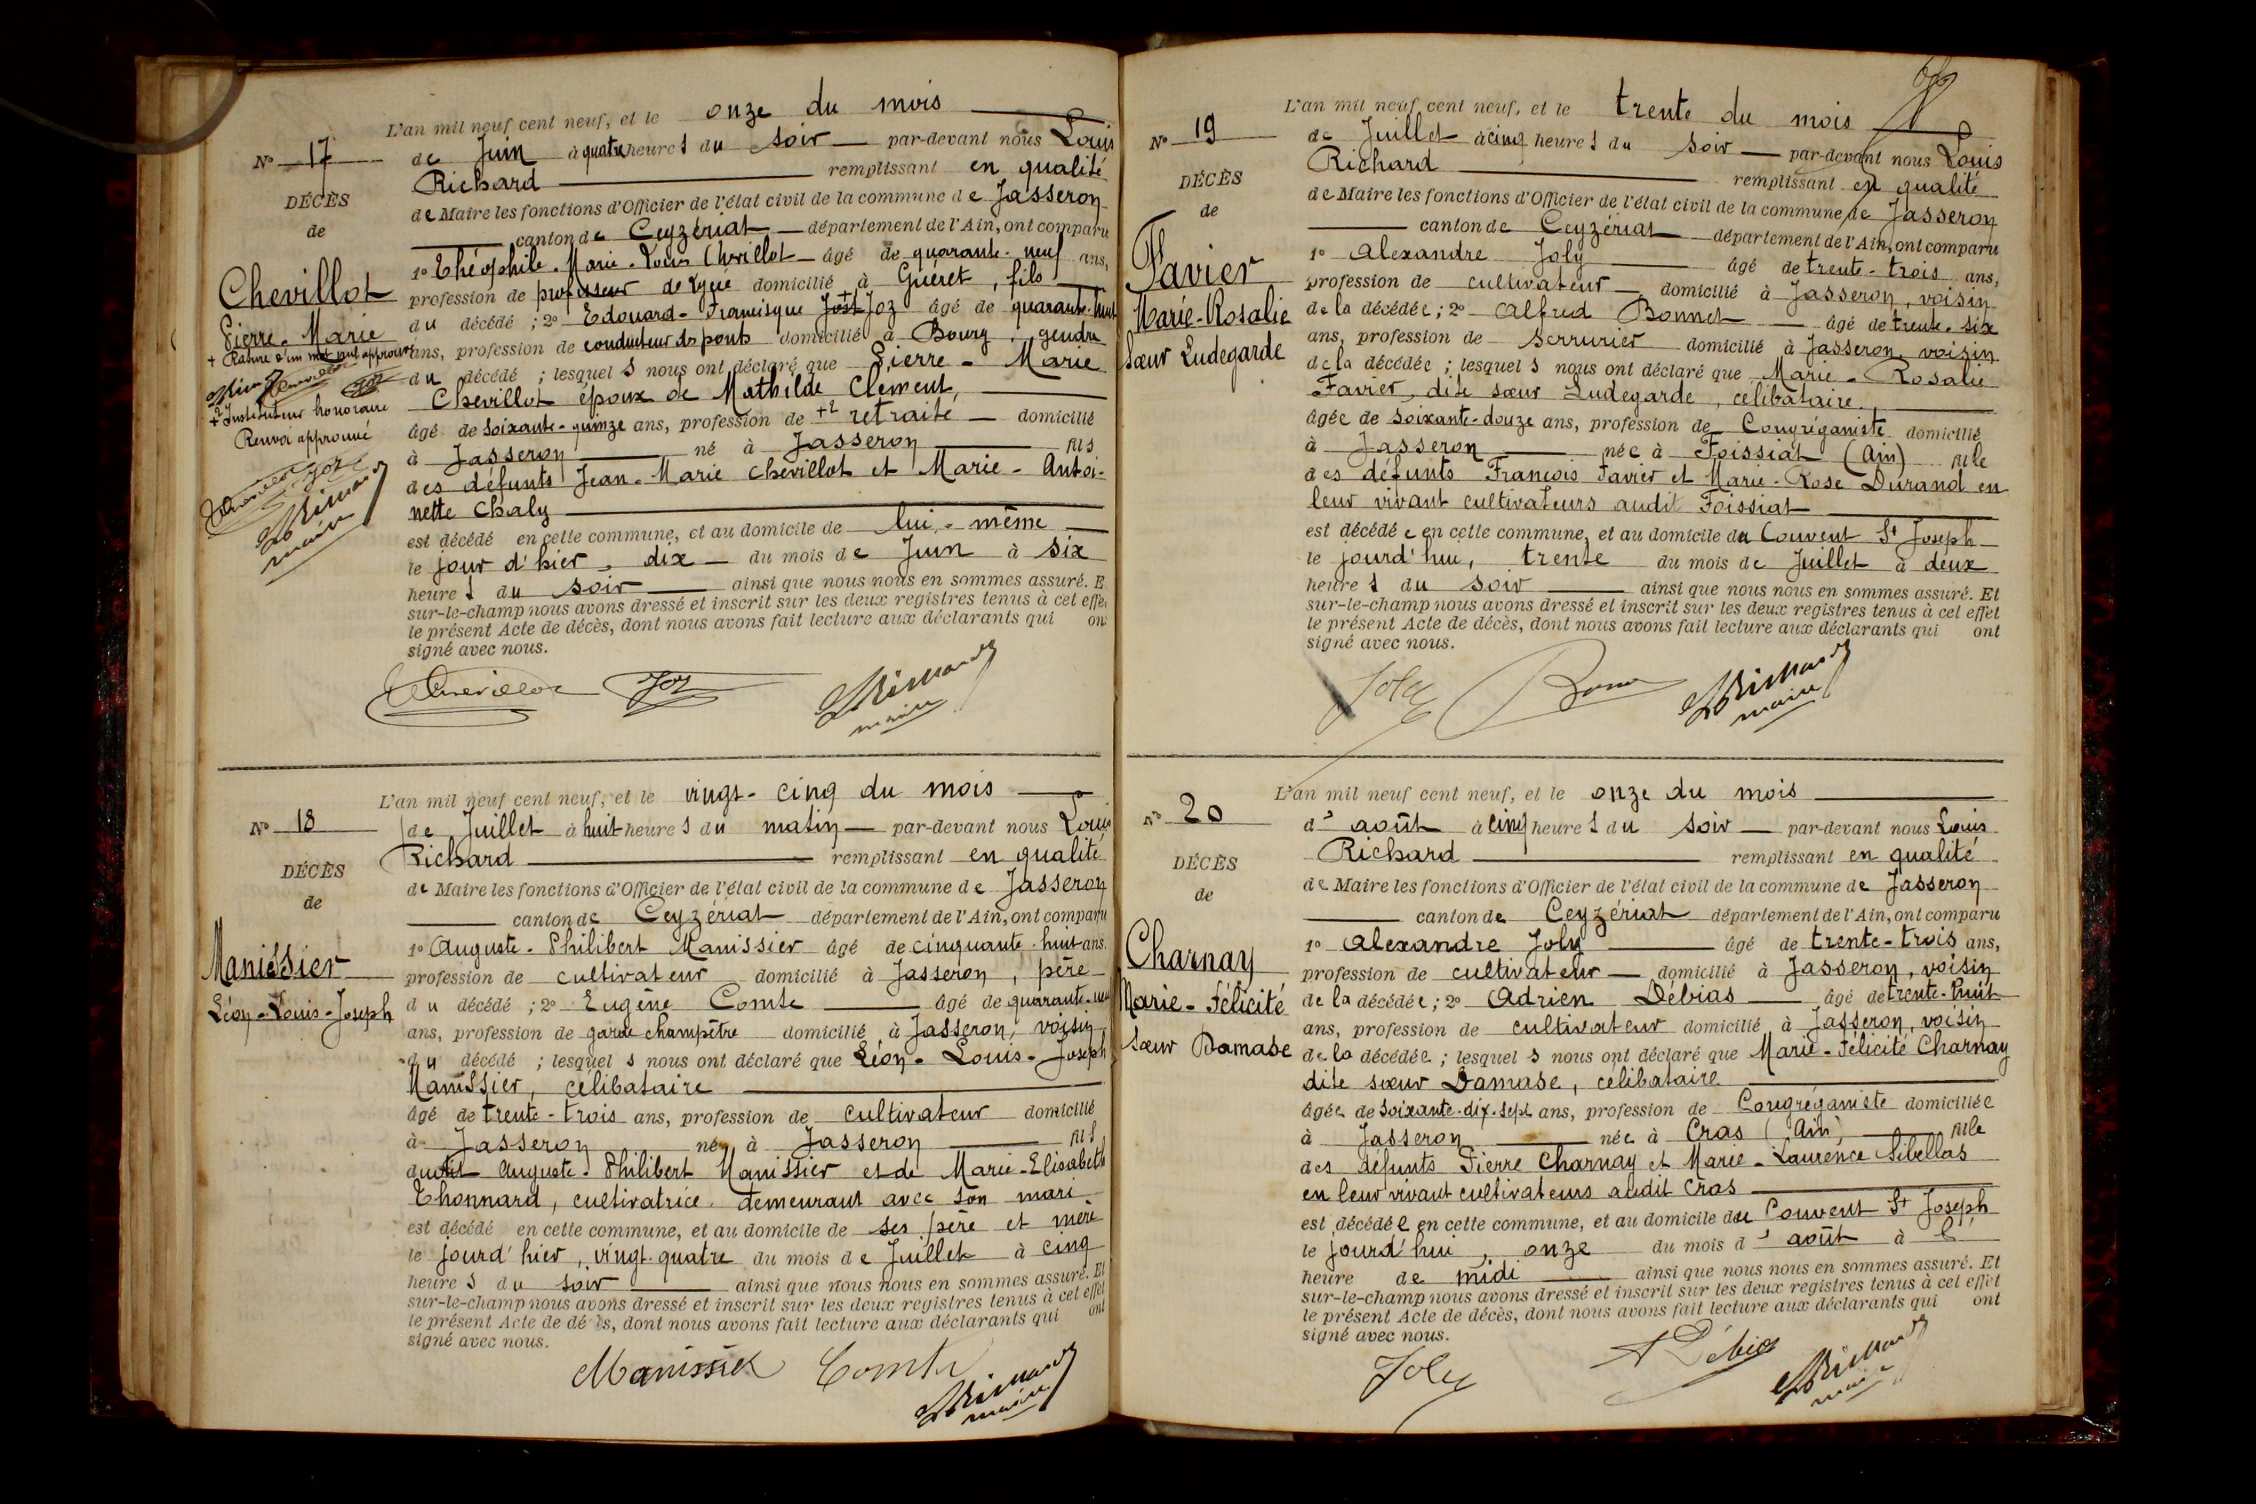 N° 17
DÉCÈS
de
Chevillot
Pierre-Marie
+ Rature d'un mot nul approuvé
+2 Instituteur honoraire
Renvoi approuvé
maire
L'an mil neuf cent neuf, et le onze du mois
de Juin à quatre heures du soir par-devant nous Louis
Richard remplissant en qualité
de Maire les fonctions d'Officier de l'état civil de la commune de Jasseron
canton de Ceyzériat département de l'Ain, ont comparu
1° Théophile-Marie-Louis Chevillot âgé de quarante-neuf ans,
profession de professeur de lycée domicilié à Guéret, fils
du décédé ; 2° Edouard-Francisque Jost + Joz âgé de quarante-huit
ans, profession de conducteur des ponts domicilié à Bourg, gendre
du décédé ; lesquels nous ont déclaré que Pierre-Marie
Chevillot époux de Mathilde Clément,
âgé de soixante-quinze ans, profession de +2 retraité domicilié
à Jasseron né à Jasseron fils
des défunts Jean-Marie Chevillot et Marie-Antoi-
nette Chaly
est décédé en cette commune, et au domicile de lui-même
le jour d'hier, dix du mois de Juin à six
heures du soir ainsi que nous nous en sommes assuré. E
sur-le-champ nous avons dressé et inscrit sur les deux registres tenus à cet effe
le présent Acte de décès, dont nous avons fait lecture aux déclarants qui on
signé avec nous.
Chevillot Joz LRichard
maire
N° 18
DÉCÈS
de
Manissier
Léon-Louis-Joseph
L'an mil neuf cent neuf, et le vingt-cinq du mois
de Juillet à huit heures du matin par-devant nous Louis
Richard remplissant en qualité
de Maire les fonctions d'Officier de l'état civil de la commune de Jasseron
canton de Ceyzériat département de l'Ain, ont comparu
1° Auguste-Philibert Manissier âgé de cinquante-huit ans.
profession de cultivateur domicilié à Jasseron, père
du décédé ; 2° Eugène Comte âgé de quarante-
ans, profession de garde champêtre domicilié à Jasseron, voisin
du décédé ; lesquels nous ont déclaré que Léon-Louis-Joseph
Manissier, célibataire
âgé de trente-trois ans, profession de cultivateur domicilié
à Jasseron né à Jasseron fils
dudit Auguste-Philibert Manissier et de Marie-Elisabeth
Thonnard, cultivatrice demeurant avec son mari
est décédé en cette commune, et au domicile de ses père et mère
le jourd'hier, vingt-quatre du mois de Juillet à cinq
heures du soir ainsi que nous nous en sommes assuré. Et
sur-le-champ nous avons dressé et inscrit sur les deux registres tenus à cet effet
le présent Acte de décès, dont nous avons fait lecture aux déclarants qui ont
signé avec nous.
Manissier Comte LRichard
maire
N° 19
DÉCÈS
de
Favier
Marie-Rosalie
Sœur Ludegarde
L'an mil neuf cent neuf, et le trente du mois
de Juillet à cinq heures du soir par-devant nous Louis
Richard remplissant en qualité
de Maire les fonctions d'Officier de l'état civil de la commune de Jasseron
canton de Ceyzériat département de l'Ain, ont comparu
1° Alexandre Joly âgé de trente-trois ans,
profession de cultivateur domicilié à Jasseron, voisin
de la décédée ; 2° Alfred Bonnet âgé de trente-six
ans, profession de serrurier domicilié à Jasseron, voisin
de la décédée ; lesquels nous ont déclaré que Marie-Rosalie
Favier, dite sœur Ludegarde, célibataire
âgée de soixante-douze ans, profession de Congréganiste domicilié
à Jasseron née à Foissiat (Ain) fille
des défunts François Favier et Marie-Rose Durand en
leur vivant cultivateurs audit Foissiat
est décédée en cette commune, et au domicile du Couvent St Joseph
le jourd'hui, trente du mois de Juillet à deux
heures du soir ainsi que nous nous en sommes assuré. Et
sur-le-champ nous avons dressé et inscrit sur les deux registres tenus à cet effet
le présent Acte de décès, dont nous avons fait lecture aux déclarants qui ont
signé avec nous.
Joly LRichard
maire
N° 20
DÉCÈS
de
Charnay
Marie-Félicité
Sœur Damase
L'an mil neuf cent neuf, et le onze du mois
d'août à cinq heures du soir par-devant nous Louis
Richard remplissant en qualité
de Maire les fonctions d'Officier de l'état civil de la commune de Jasseron
canton de Ceyzériat département de l'Ain, ont comparu
1° Alexandre Joly âgé de trente-trois ans,
profession de cultivateur domicilié à Jasseron, voisin
de la décédée ; 2° Adrien Débias âgé de trente-huit
ans, profession de cultivateur domicilié à Jasseron, voisin
de la décédée ; lesquels nous ont déclaré que Marie-Félicité Charnay
dite sœur Damase, célibataire
âgée de soixante-dix-sept ans, profession de Congréganiste domiciliée
à Jasseron née à Cras (Ain) fille
des défunts Pierre Charnay et Marie-Laurence Sibellas
en leur vivant cultivateurs audit Cras
est décédée en cette commune, et au domicile du Couvent St Joseph
le jourd'hui, onze du mois d'août à l
heure de midi ainsi que nous nous en sommes assuré. Et
sur-le-champ nous avons dressé et inscrit sur les deux registres tenus à cet effet
le présent Acte de décès, dont nous avons fait lecture aux déclarants qui ont
signé avec nous.
Joly A Débias LRichard
maire